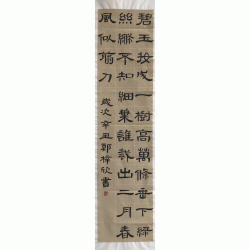 碧玉妝成一樹高萬條垂下綠
絲絛不知細葉誰裁出二月春
風似剪刀
歲次辛丑郭梓欣書